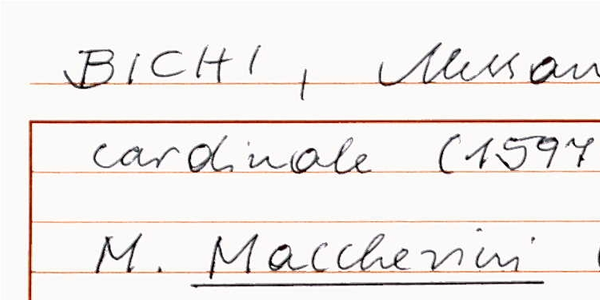 BICHI, Alessan
cardinale (1597
M. Maccherini (